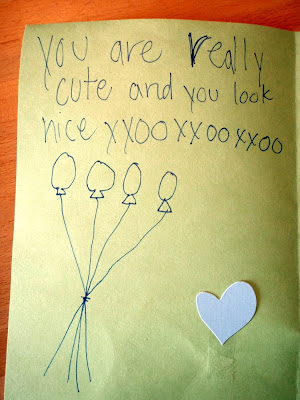 you are really
cute and you look
nice xxooxxooxxoo